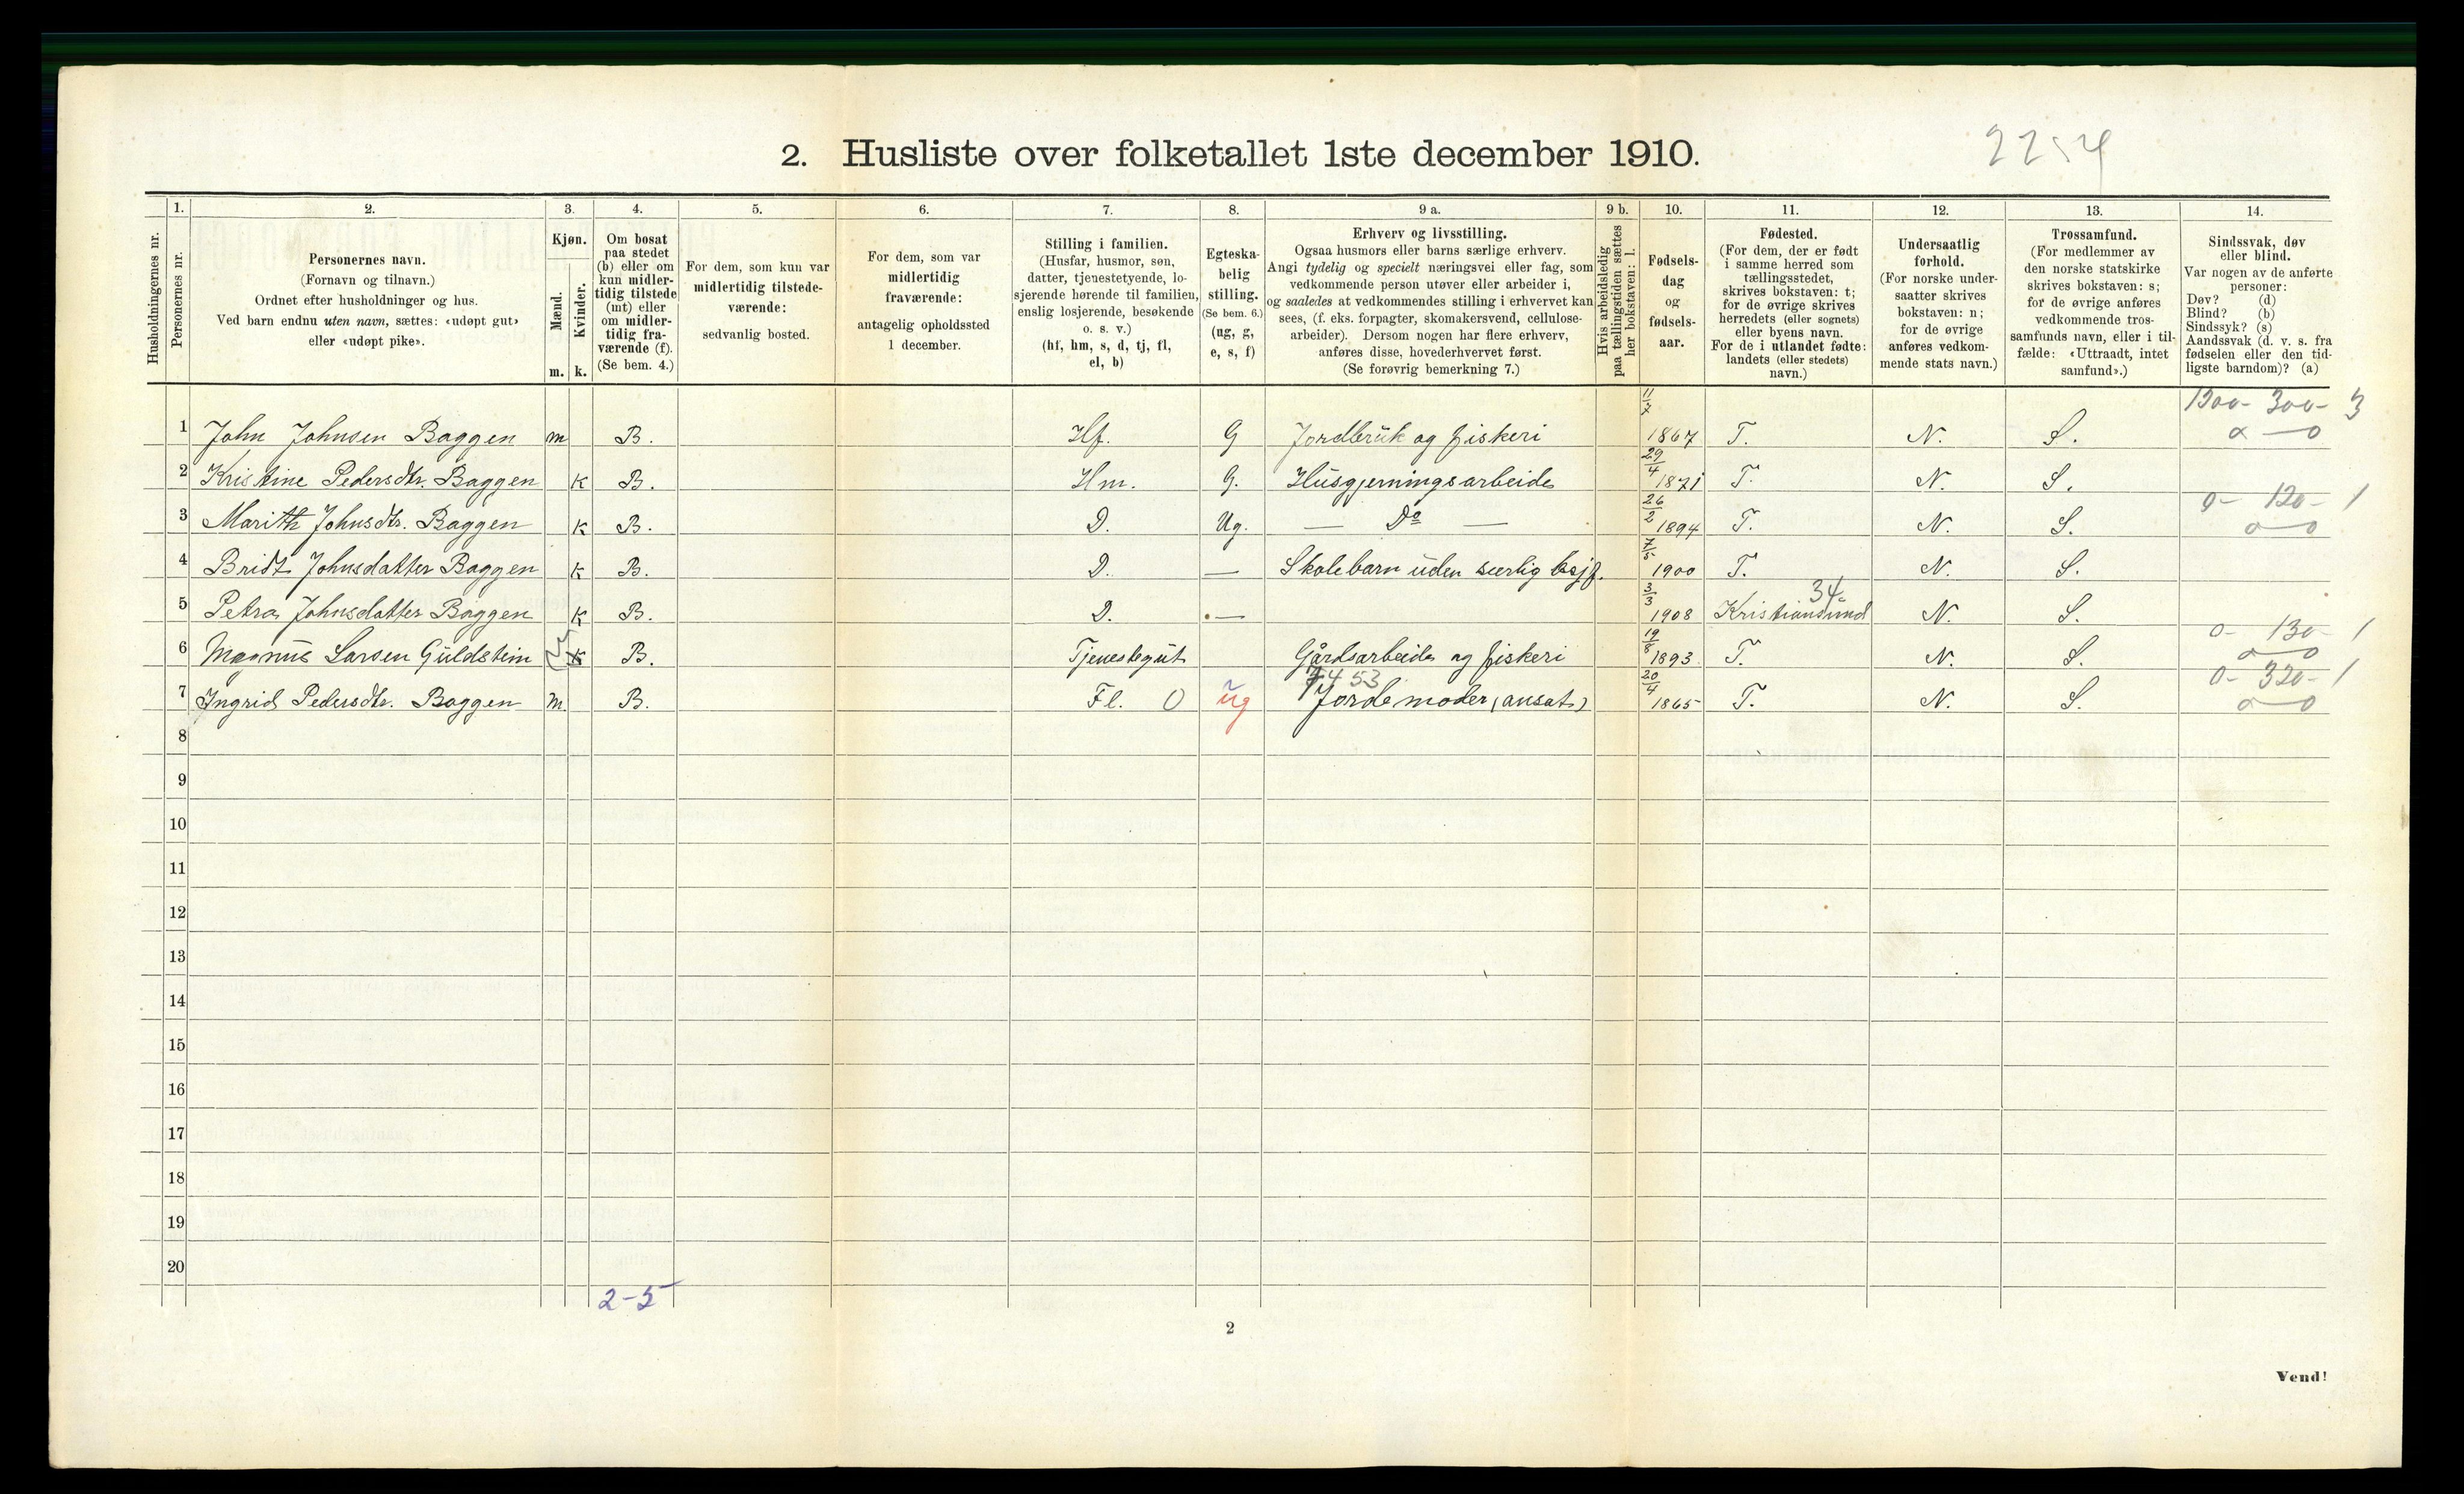 2254
2. Husliste over folketallet 1ste december 1910.
Husholdningernes nr.
1. Personernes nr.
2. Personernes navn. (Fornavn og tilnavn.) Ordnet efter husholdninger og hus. Ved barn endnu uten navn, sættes: «udøpt gut» eller «udøpt pike».
3. Kjøn. Mænd. m. Kvinder. k.
4. Om bosat paa stedet (b) eller om kun midlertidig tilstede (mt) eller om midlertidig fraværende (f). (Se bem. 4.)
5. For dem, som kun var midlertidig tilstedeværende: sedvanlig bosted.
6. For dem, som var midlertidig fraværende: antagelig opholdssted 1 december.
7. Stilling i familien. (Husfar, husmor, søn, datter, tjenestetyende, losjerende hørende til familien, enslig losjerende, besøkende o. s. v.) (hf, hm, s, d, tj, fl, el, b)
8. Egteskabelig stilling. (Se bem. 6.) (ug, g, e, s, f)
9 a. Erhverv og livsstilling. Ogsaa husmors eller barns særlige erhverv. Angi tydelig og specielt næringsvei eller fag, som vedkommende person utøver eller arbeider i, og saaledes at vedkommendes stilling i erhvervet kan sees, (f. eks. forpagter, skomakersvend, cellulosearbeider). Dersom nogen har flere erhverv, anføres disse, hovederhvervet først. (Se forøvrig bemerkning 7.)
9 b. Hvis arbeidsledig paa tællingstiden sættes her bokstaven: l.
10. Fødselsdag og fødselsaar.
11. Fødested. (For dem, der er født i samme herred som tællingsstedet, skrives bokstaven: t; for de øvrige skrives herredets (eller sognets) eller byens navn. For de i utlandet fødte: landets (eller stedets) navn.)
12. Undersaatlig forhold. (For norske undersaatter skrives bokstaven: n; for de øvrige anføres vedkommende stats navn.)
13. Trossamfund. (For medlemmer av den norske statskirke skrives bokstaven: s; for de øvrige anføres vedkommende trossamfunds navn, eller i tilfælde: «Uttraadt, intet samfund».)
14. Sindssvak, døv eller blind. Var nogen av de anførte personer: Døv? (d) Blind? (b) Sindssyk? (s) Aandssvak (d. v. s. fra fødselen eller den tidligste barndom)? (a)
1 John Johnsen Baggen m B. Hf. G Jordbruk og fiskeri 11/7 1867 T. N. S. 1300- 300- 3 0-0
2 Kristine Pedersdtr. Baggen k B. Hm. G. Husgjerningsarbeide 29/4 1871 T. N. S.
3 Marith Johnsdtr. Baggen k B. D. Ug. — Do — 26/2 1894 T. N. S. 0- 120- 1 0-0
4 Bridt Johnsdatter Baggen k B. D. — Skolebarn uden særlig besjf. 7/5 1900 T. N. S.
5 Petra Johnsdatter Baggen k B. D. — 3/3 1908 34 Kristiansund N. S.
6 Magnus Larsen Guldstein k B. Tjenestegut Gårdsarbeide og fiskeri 19/8 1893 T. N. S. 0- 130- 1 0-0
7 Ingrid Pedersdtr. Baggen m. B. Fl. O ug 7453 Jordemoder (ansat) 20/4 1865 T. N. S. 0- 320- 1 0-0
8
9
10
11
12
13
14
15
16
17
18
19
20
2-5
2
Vend!